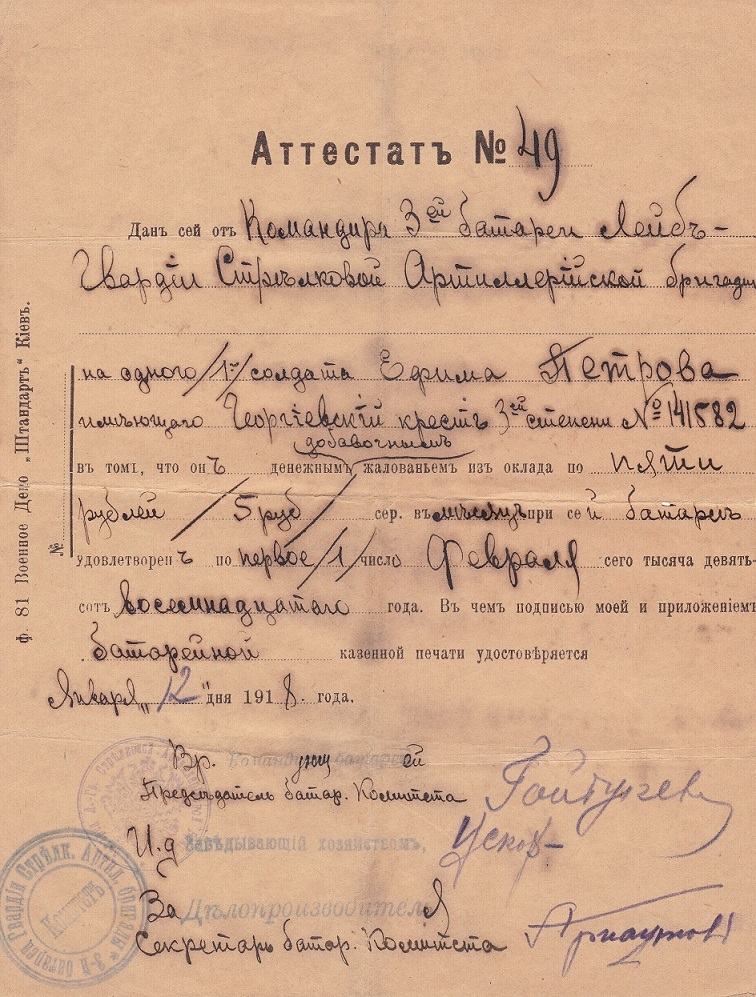 Аттестатъ № 49
Данъ сей отъ Командира 3ей батареи Лейбъ-
Гвардіи Стрѣлковой Артиллерійской бригады
на одного /1го/ солдата Ефима Петрова
имѣющаго Георгіевскій крестъ 3ей степени № 141582
добавочнымъ
въ томъ, что онъ денежнымъ жалованьемъ изъ оклада по пяти
рублей /5 руб/ сер. въ мѣсяцъ при сей батареѣ
удовлетворенъ по первое /1/ число Февраля сего тысяча девять-
сотъ восемнадцатаго года. Въ чемъ подписью моей и приложеніемъ
батарейной казенной печати удостовѣряется
Января „12" дня 1918. года.
Вр. Командующій батареей
Предсѣдатель батар. Комитета
И.д Завѣдывающій хозяйствомъ,
За Дѣлопроизводителя
Секретарь батар. Комитета
Ф. 81 Военное Дело „Штандартъ" Кіевъ.
№
3-й батареи Гвардіи Стрѣлк. Артил. бригады
Комитетъ